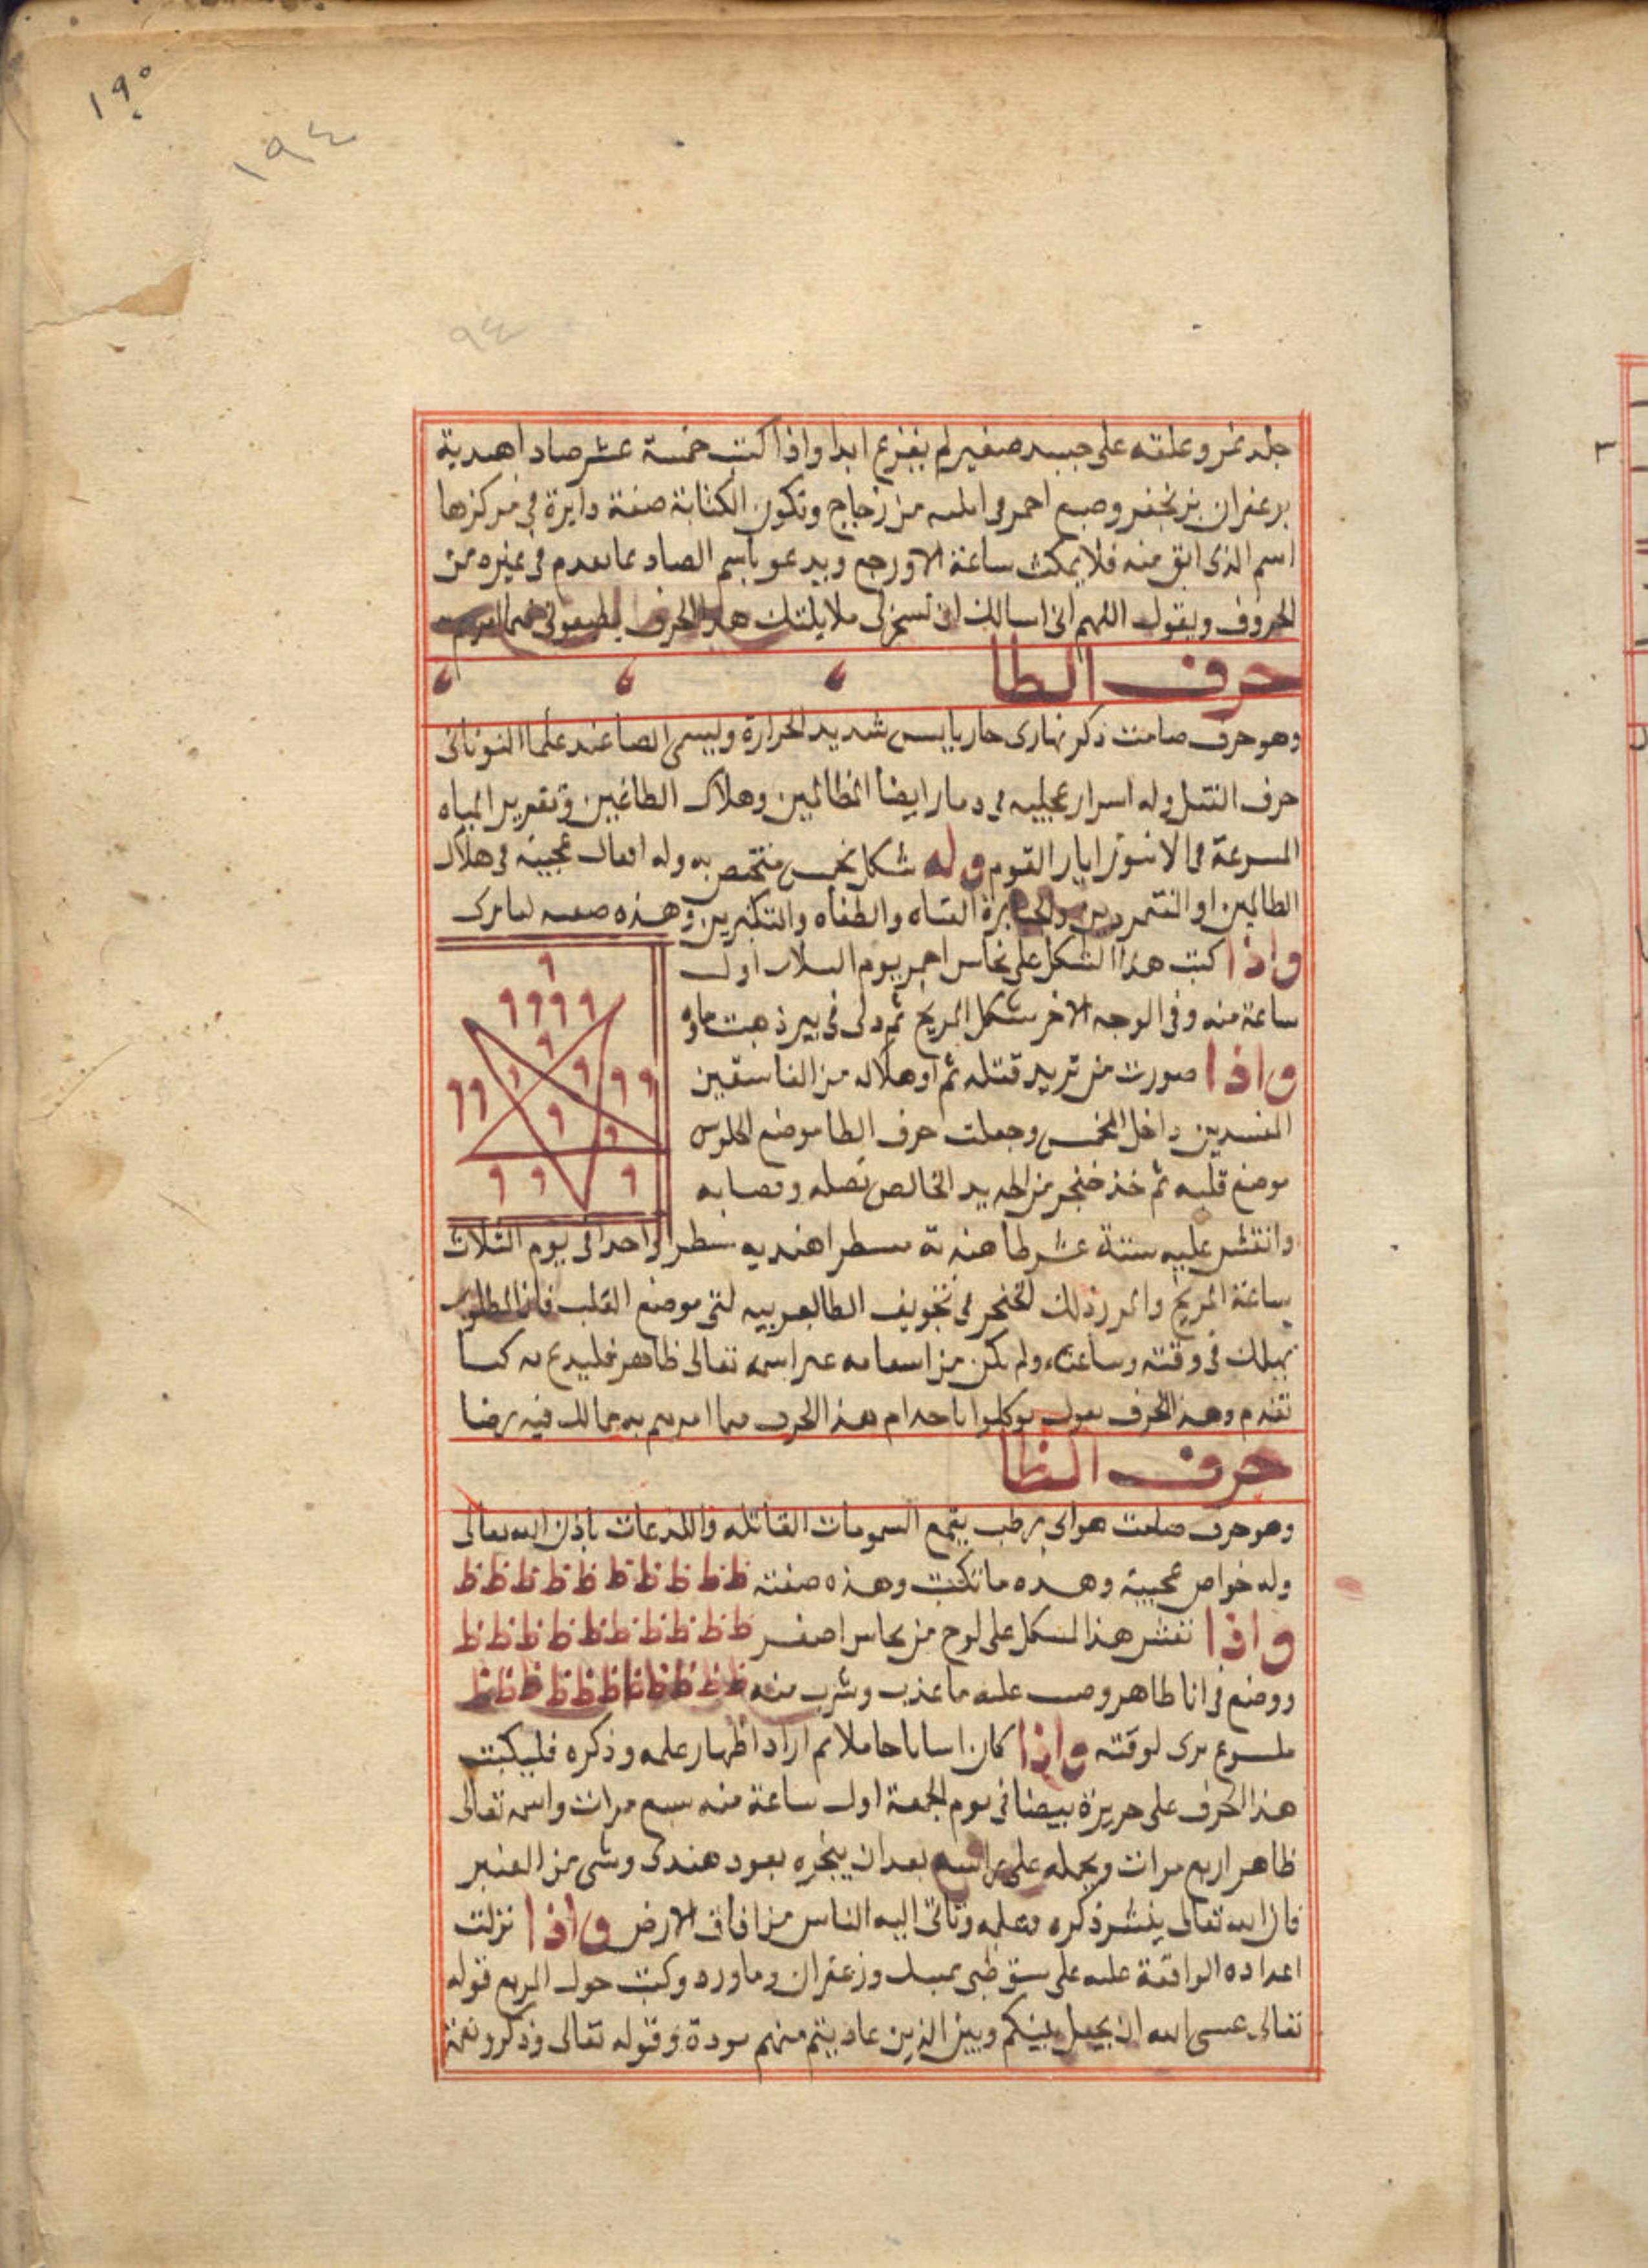 ١٩٥
١٩٤
٩٤
جلد نمر وعلقه على جسد صغير لم يفزع ابدا واذا كتب خمسة عشر صادا هندية
بزعفران بزنجفر وصبع احمر فى من زجاج وتكون الكتابة صفة دايرة فى مركزها
اسم الذى ابق منه فلا يمكث ساعة الا ورجع ويدعو باسم الصاد بما تقدم فى غيره من
الحروف ويقول اللهم انى اسالك ان تسخر لى ملايكتك هذا الحرف يطيعونى فيما
حرف الطا
وهو حرف صامت ذكر نهارى حار يابس شديد الحرارة ويسمى ايضا عند علما
حرف القتل وله اسرار عجيبه فى دمار ايضا الظالمين وهلاك الطاغين وتغوير المياه
المسرعة فى ابار القوم وله شكل مخمس مختص به وله افعال عجيبة فى هلاك
الظالمين او المتمردين والجبابرة العتاه والطغاه والمتكبرين وهذه صفته كما ترى
واذا كتب هذا الشكل على نحاس احمر يوم الثلاث اول
ساعة منه وفى الوجه الاخر شكل المريخ ثم دلى فى بير ذهبت ماوه
واذا صورت من تريد قتله ثم او هلاله من الفاسقين
المفسدين داخل المخمس وجعلت حرف الطا موضع
موضع قلبه ثم خذ خنجر من الحديد الخالص نصله ونصابه
وانقش عليه ستة عشر طا هندية سطرا واحدا فى يوم الثلاث
ساعة المريخ واغرز ذلك الخنجر فى تجويف الطا العربيه التى موضع القلب فان المطلوب
يهلك فى وقته وساعته ولم يكن من اسمايه غير اسمه تعالى ظاهر فليدع به كما
تقدم وهذا الحرف يقول توكلوا ياخدام هذا الحرف فيما امرتم به مما لله فيه رضا
حرف الظا
وهو حرف صامت هواى رطب يقمع السمومات القاتله واللذعات باذن الله تعالى
وله خواص عجيبة وهذه ما تكتب وهذه صفته ظ ظ ظ ظ ظ ظ ظ ظ ظ ظ
واذا نقش هذا الشكل على لوح من نحاس اصفر ظ ظ ظ ظ ظ ظ ظ ظ ظ ظ
ووضع فى انا طاهر وصب عليه ما عذب وشرب منه ظ ظ ظ ظ ظ ظ ظ ظ ظ ظ
ملسوع برى لوقته واذا كان انسانا حاملا ثم اراد اظهار علمه وذكره فليكتب
هذا الحرف على حريرة بيضا فى يوم الجمعة اول ساعة منه سبع مرات واسمه تعالى
ظاهر اربع مرات ويحمله على راسه بعد ان يبخره بعود هندى وشى من العنبر
فان الله تعالى ينشر ذكره وعلمه وتاتى اليه الناس من افاق الارض واذا نزلت
اعداده الواقعة عليه على رق ظبى بمسك وزعفران وماورد وكتب حول المربع قوله
تعالى عسى الله ان يجعل بينكم وبين الذين عاديتم منهم مودة وقوله تعالى وذكرو نعمة